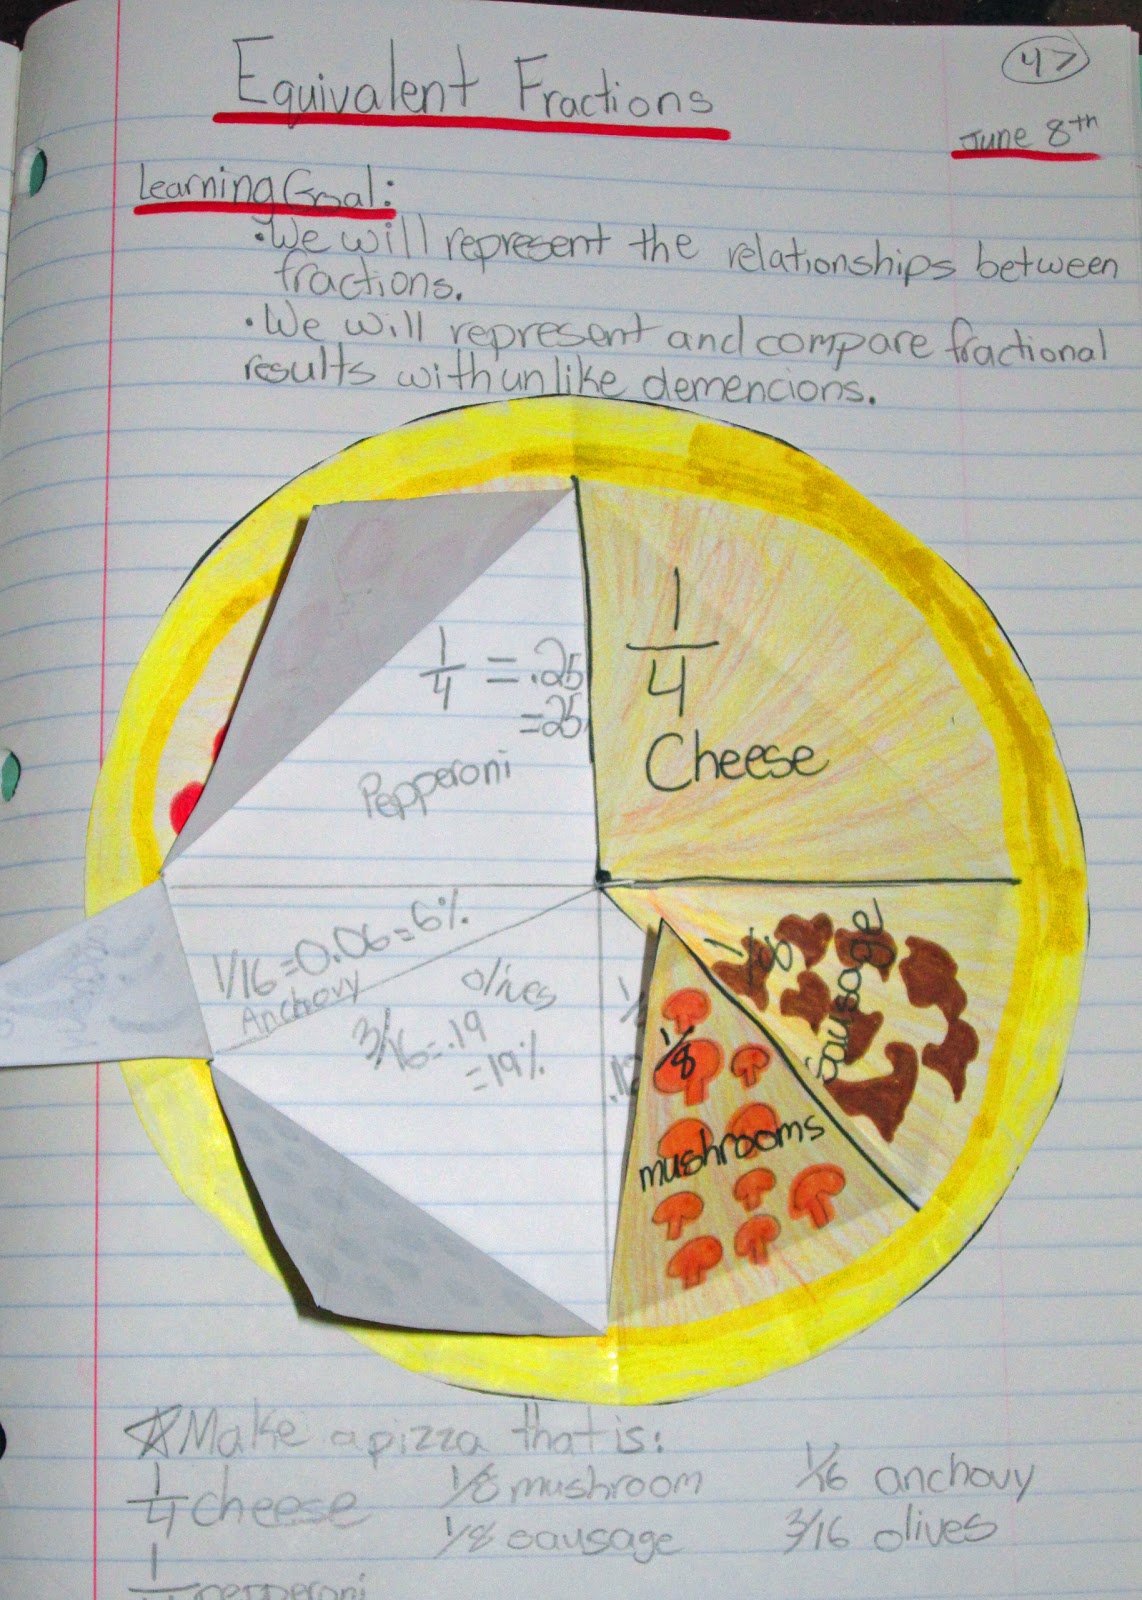 Equivalent Fractions
47
June 8th
Learning Goal:
• We will represent the relationships between
fractions.
• We will represent and compare fractional
results with unlike demencions.
1/4 = .25
= 25
Pepperoni
1/4
Cheese
1/16 = 0.06 = 6%
Anchovy
olives
3/16 = .19
= 19%
.12
1/8
sausage
1/8
mushrooms
☆ Make a pizza that is:
1/4 cheese 1/8 mushroom 1/16 anchovy
1/8 sausage 3/16 olives
pepperoni